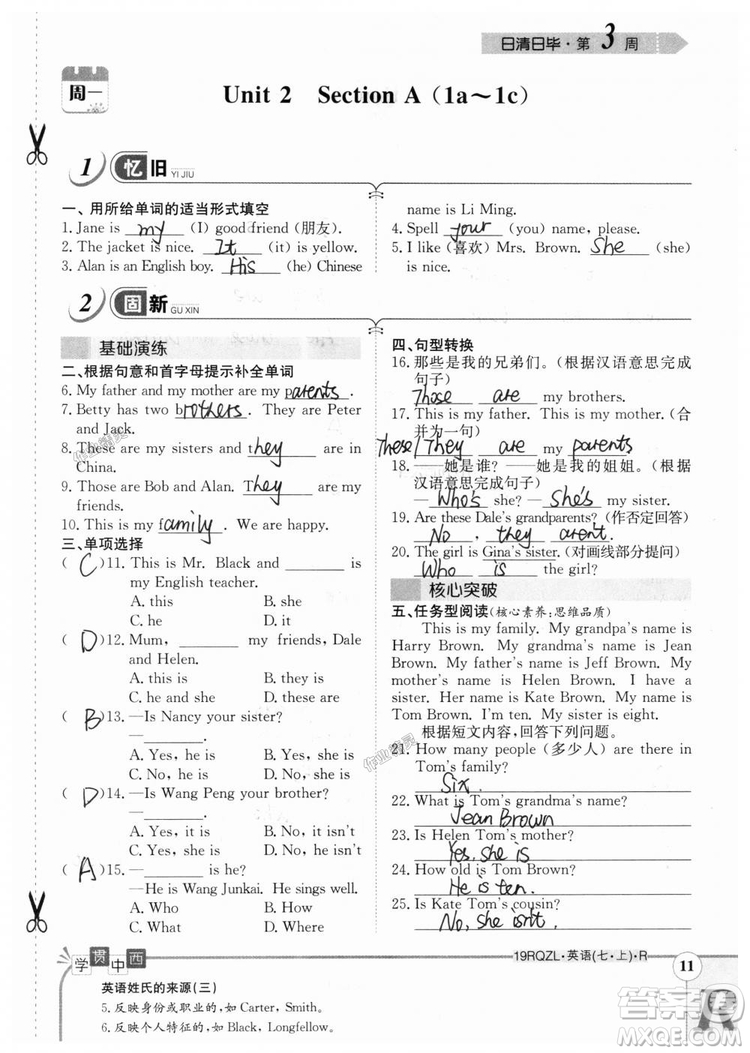 日清日毕·第3周
周一
Unit 2 Section A (1a～1c)
1 忆旧 YI JIU
一、用所给单词的适当形式填空
1. Jane is my (I) good friend (朋友).
2. The jacket is nice. It (it) is yellow.
3. Alan is an English boy. His (he) Chinese
name is Li Ming.
4. Spell your (you) name, please.
5. I like (喜欢) Mrs. Brown. She (she)
is nice.
2 固新 GU XIN
基础演练
二、根据句意和首字母提示补全单词
6. My father and my mother are my parents.
7. Betty has two brothers. They are Peter
and Jack.
8. These are my sisters and they are in
China.
9. Those are Bob and Alan. They are my
friends.
10. This is my family. We are happy.
三、单项选择
( C )11. This is Mr. Black and ______ is
my English teacher.
A. this B. she
C. he D. it
( D )12. Mum, ______ my friends, Dale
and Helen.
A. this is B. they're
C. he and she D. these are
( B )13. —Is Nancy your sister?
—______.
A. Yes, he is B. Yes, she is
C. No, he isn't D. No, she is
( D )14. —Is Wang Peng your brother?
—______.
A. Yes, it is B. No, it isn't
C. Yes, he isn't D. No, he isn't
( A )15. —______ is he?
—He is Wang Junkai. He sings well.
A. Who B. How
C. What D. Where
四、句型转换
16. 那些是我的兄弟们。(根据汉语意思完成
句子)
Those are my brothers.
17. This is my father. This is my mother. (合
并为一句)
These/They are my parents
18. ——她是谁？ ——她是我的姐姐。(根据
汉语意思完成句子)
— Who's she? — She's my sister.
19. Are these Dale's grandparents? (作否定回答)
No, they aren't.
20. The girl is Gina's sister. (对画线部分提问)
Who is the girl?
核心突破
五、任务型阅读(核心素养:思维品质)
This is my family. My grandpa's name is
Harry Brown. My grandma's name is Jean
Brown. My father's name is Jeff Brown. My
mother's name is Helen Brown. I have a
sister. Her name is Kate Brown. My name is
Tom Brown. My sister is eight.
根据短文内容，回答下列问题。
21. How many people (多少人) are there in
Tom's family?
Six.
22. What is Tom's grandma's name?
Jean Brown
23. Is Helen Tom's mother?
Yes, she is
24. How old is Tom Brown?
He is ten.
25. Is Kate Tom's cousin?
No, she isn't.
学贯中西
英语姓氏的来源(三)
5. 反映身份或职业的,如 Carter, Smith。
6. 反映个人特征的,如 Black, Longfellow。
19RQZL·英语(七·上)·R
11
答案圈
MXQE.COM
作业精灵
作业精灵